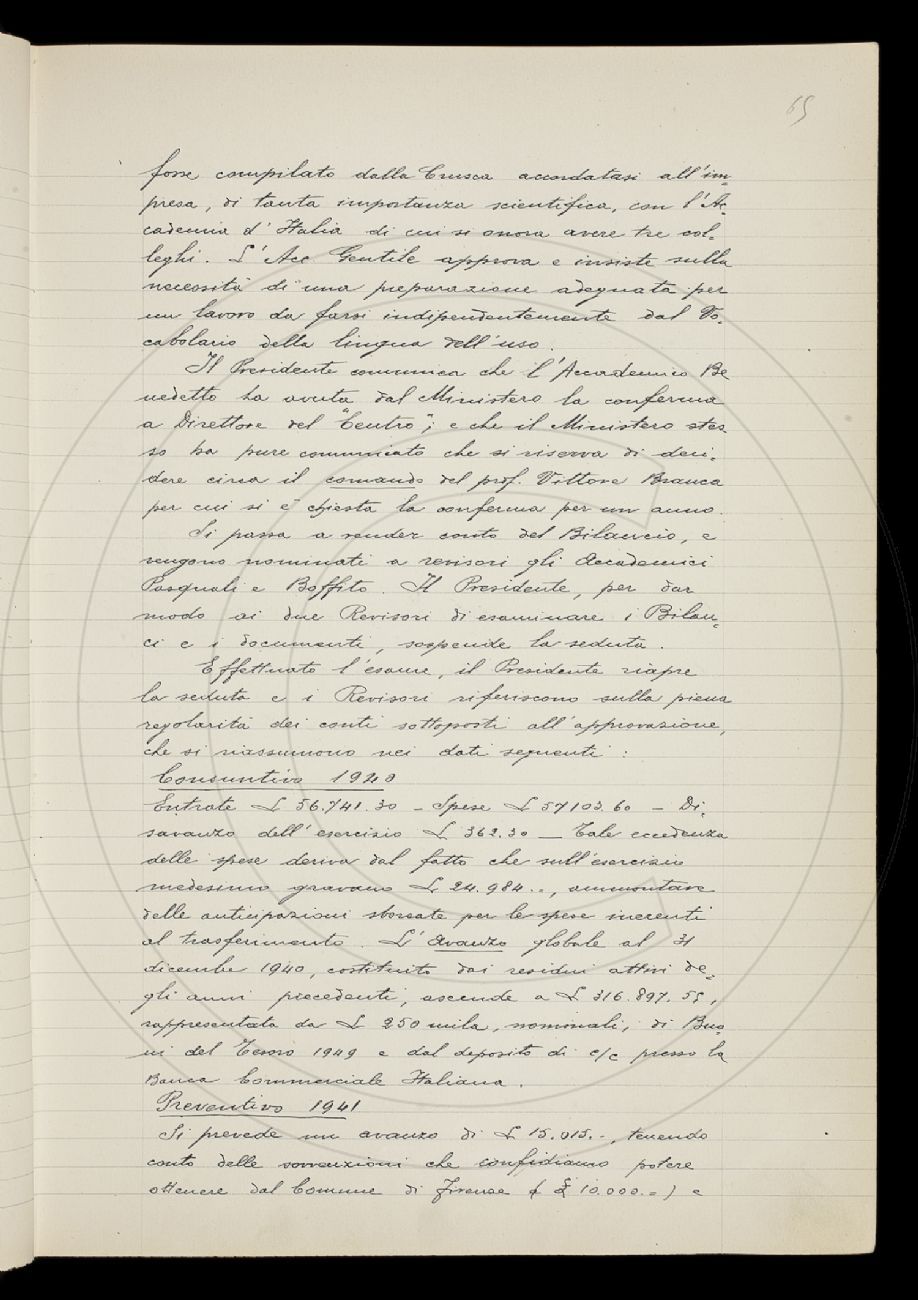 65
fosse compilato dalla Crusca accordatasi all'im-
presa, di tanta importanza scientifica, con l'Ac-
cademia d'Italia di cui si onora avere tre col-
leghi. L'Acc Gentile approva e insiste sulla
necessità di una preparazione adeguata per
un lavoro da farsi indipendentemente dal Vo-
cabolario della lingua dell'uso.
Il Presidente comunica che l'Accademico Be
nedetto ha avuta dal Ministero la conferma
a Direttore del "Centro"; e che il Ministero stes-
so ha pure comunicato che si riserva di deci-
dere circa il comando del prof. Vittore Branca
per cui si è chiesta la conferma per un anno.
Si passa a render conto del Bilancio, e
vengono nominati a revisori gli Accademici
Pasquali e Boffito. Il Presidente, per dar
modo ai due Revisori di esaminare i Bilan-
ci e i documenti, sospende la seduta.
Effettuato l'esame, il Presidente riapre
la seduta e i Revisori riferiscono sulla piena
regolarità dei conti sottoposti all'approvazione,
che si riassumono nei dati seguenti:
Consuntivo 1940
Entrate £ 56.741.30 - Spese £ 57103.60 - Di-
savanzo dell'esercizio £ 362.30 - Tale eccedenza
delle spese deriva dal fatto che sull'esercizio
medesimo gravano £ 24.984.-, ammontare
delle anticipazioni sborsate per le spese inerenti
al trasferimento. L'avanzo globale al 31
dicembre 1940, costituito dai residui attivi de-
gli anni precedenti, ascende a £ 316.897.55,
rappresentata da £ 250 mila, nominali, di Buo-
ni del Tesoro 1949 e dal deposito di c/c presso la
Banca Commerciale Italiana.
Preventivo 1941
Si prevede un avanzo di £ 15.015.-, tenendo
conto delle sovvenzioni che confidiamo potere
ottenere dal Comune di Firenze (£ 10.000.-) e